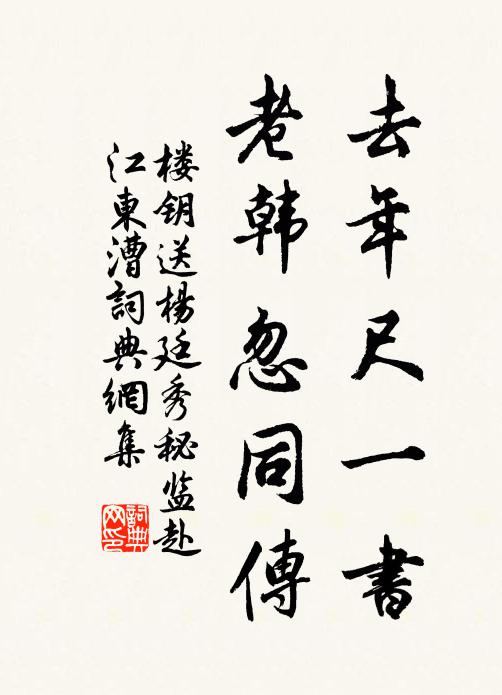 去年尺一書
老韩忽同傳
楼钥送楊廷秀秘监赴
江東漕詞典網集
詞典網印